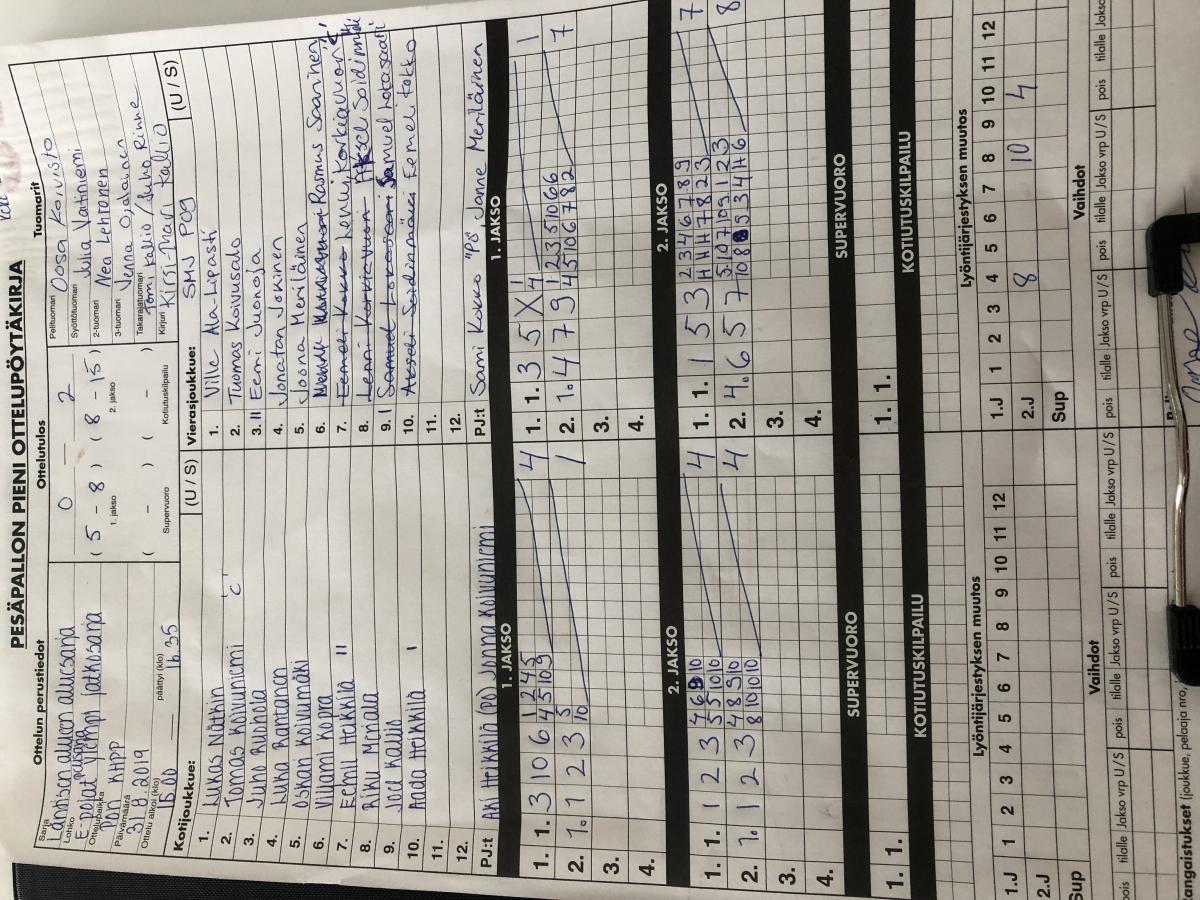 PESÄPALLON PIENI OTTELUPÖYTÄKIRJA
Ottelun perustiedot
Sarja
Läntisen alueen aluesarja
Lohko
E-pojat ylempi jatkosarja
Ottelupaikka
Pori KHPP
Päivämäärä
31.8.2019
Ottelu alkoi (klo) päättyi (klo)
15.00 16.35
Ottelutulos
0 – 2
( 5 – 8 ) ( 8 – 15 )
1. jakso 2. jakso
( – ) ( – )
Supervuoro Kotiutuskilpailu
Tuomarit
Pelituomari Oosa Koivisto
Syöttötuomari Julia Vaitiniemi
2-tuomari Nea Lehtonen
3-tuomari Jenna Ojalainen
Takarajatuomari Tomi Kallio / Juha Rinne
Kirjuri Kirsi-Mari Kallio
Kotijoukkue: (U / S)
1. Lukas Nätkin
2. Tomas Koivuniemi 'c'
3. Juho Ruohola
4. Luka Rantanen
5. Oskari Koivumäki
6. Viljami Kopra
7. Eemil Heikkilä II
8. Riku Mattala
9. Joel Kallio
10. Aada Heikkilä I
11.
12.
PJ:t Aki Heikkilä (PJ) Jonna Koivuniemi
Vierasjoukkue: SMJ P09 (U / S)
1. Ville Ala-Lipasti
2. Tuomas Koivusalo
3. II Eemi Juonoja
4. Jonatan Johkinen
5. Joona Meriläinen
6. Rasmus Saarinen
7. Eemeli Kokko Lenni Korkiavuori 'c'
8. Lenni Korkiavuori Aksel Soidinmäki
9. I Samuel Lokasaari Samuel Lokasaari
10. Akseli Soidinmäki Eemeli Kokko
11.
12.
PJ:t Sami Kokko "PJ" Janne Meriläinen
1. JAKSO
1. 1. 3 10 6 1 2 4 5 4
4 5 10 9
2. 1. 1 2 3 5 1
10
3.
4.
1. JAKSO
1. 1. 3 5 X 1 1
4
2. 1. 4 7 9 1 2 3 5 10 6 6 7
4 5 10 6 7 8 2
3.
4.
2. JAKSO
1. 1. 1 2 3 4 6 9 10 4
5 5 10 10
2. 1. 1 2 3 4 8 9 10 4
8 10 10 10
3.
4.
2. JAKSO
1. 1. 1 5 3 2 3 4 6 7 8 9 7
H H H 7 8 2 3
2. 4. 6 5 7 8
3.
4.
SUPERVUORO
1. 1.
SUPERVUORO
1. 1.
KOTIUTUSKILPAILU
KOTIUTUSKILPAILU
Lyöntijärjestyksen muutos
1.J 1 2 3 4 5 6 7 8 9 10 11 12
2.J
Sup
Lyöntijärjestyksen muutos
1.J 1 2 3 4 5 6 7 8 9 10 11 12
2.J 8 10 4
Sup
Vaihdot
pois tilalle Jakso vrp U/S pois tilalle Jakso vrp U/S pois tilalle Jakso vrp U/S
Vaihdot
pois tilalle Jakso vrp U/S pois tilalle Jakso vrp U/S pois tilalle Jakso
angaistukset (joukkue, pelaaja nro,